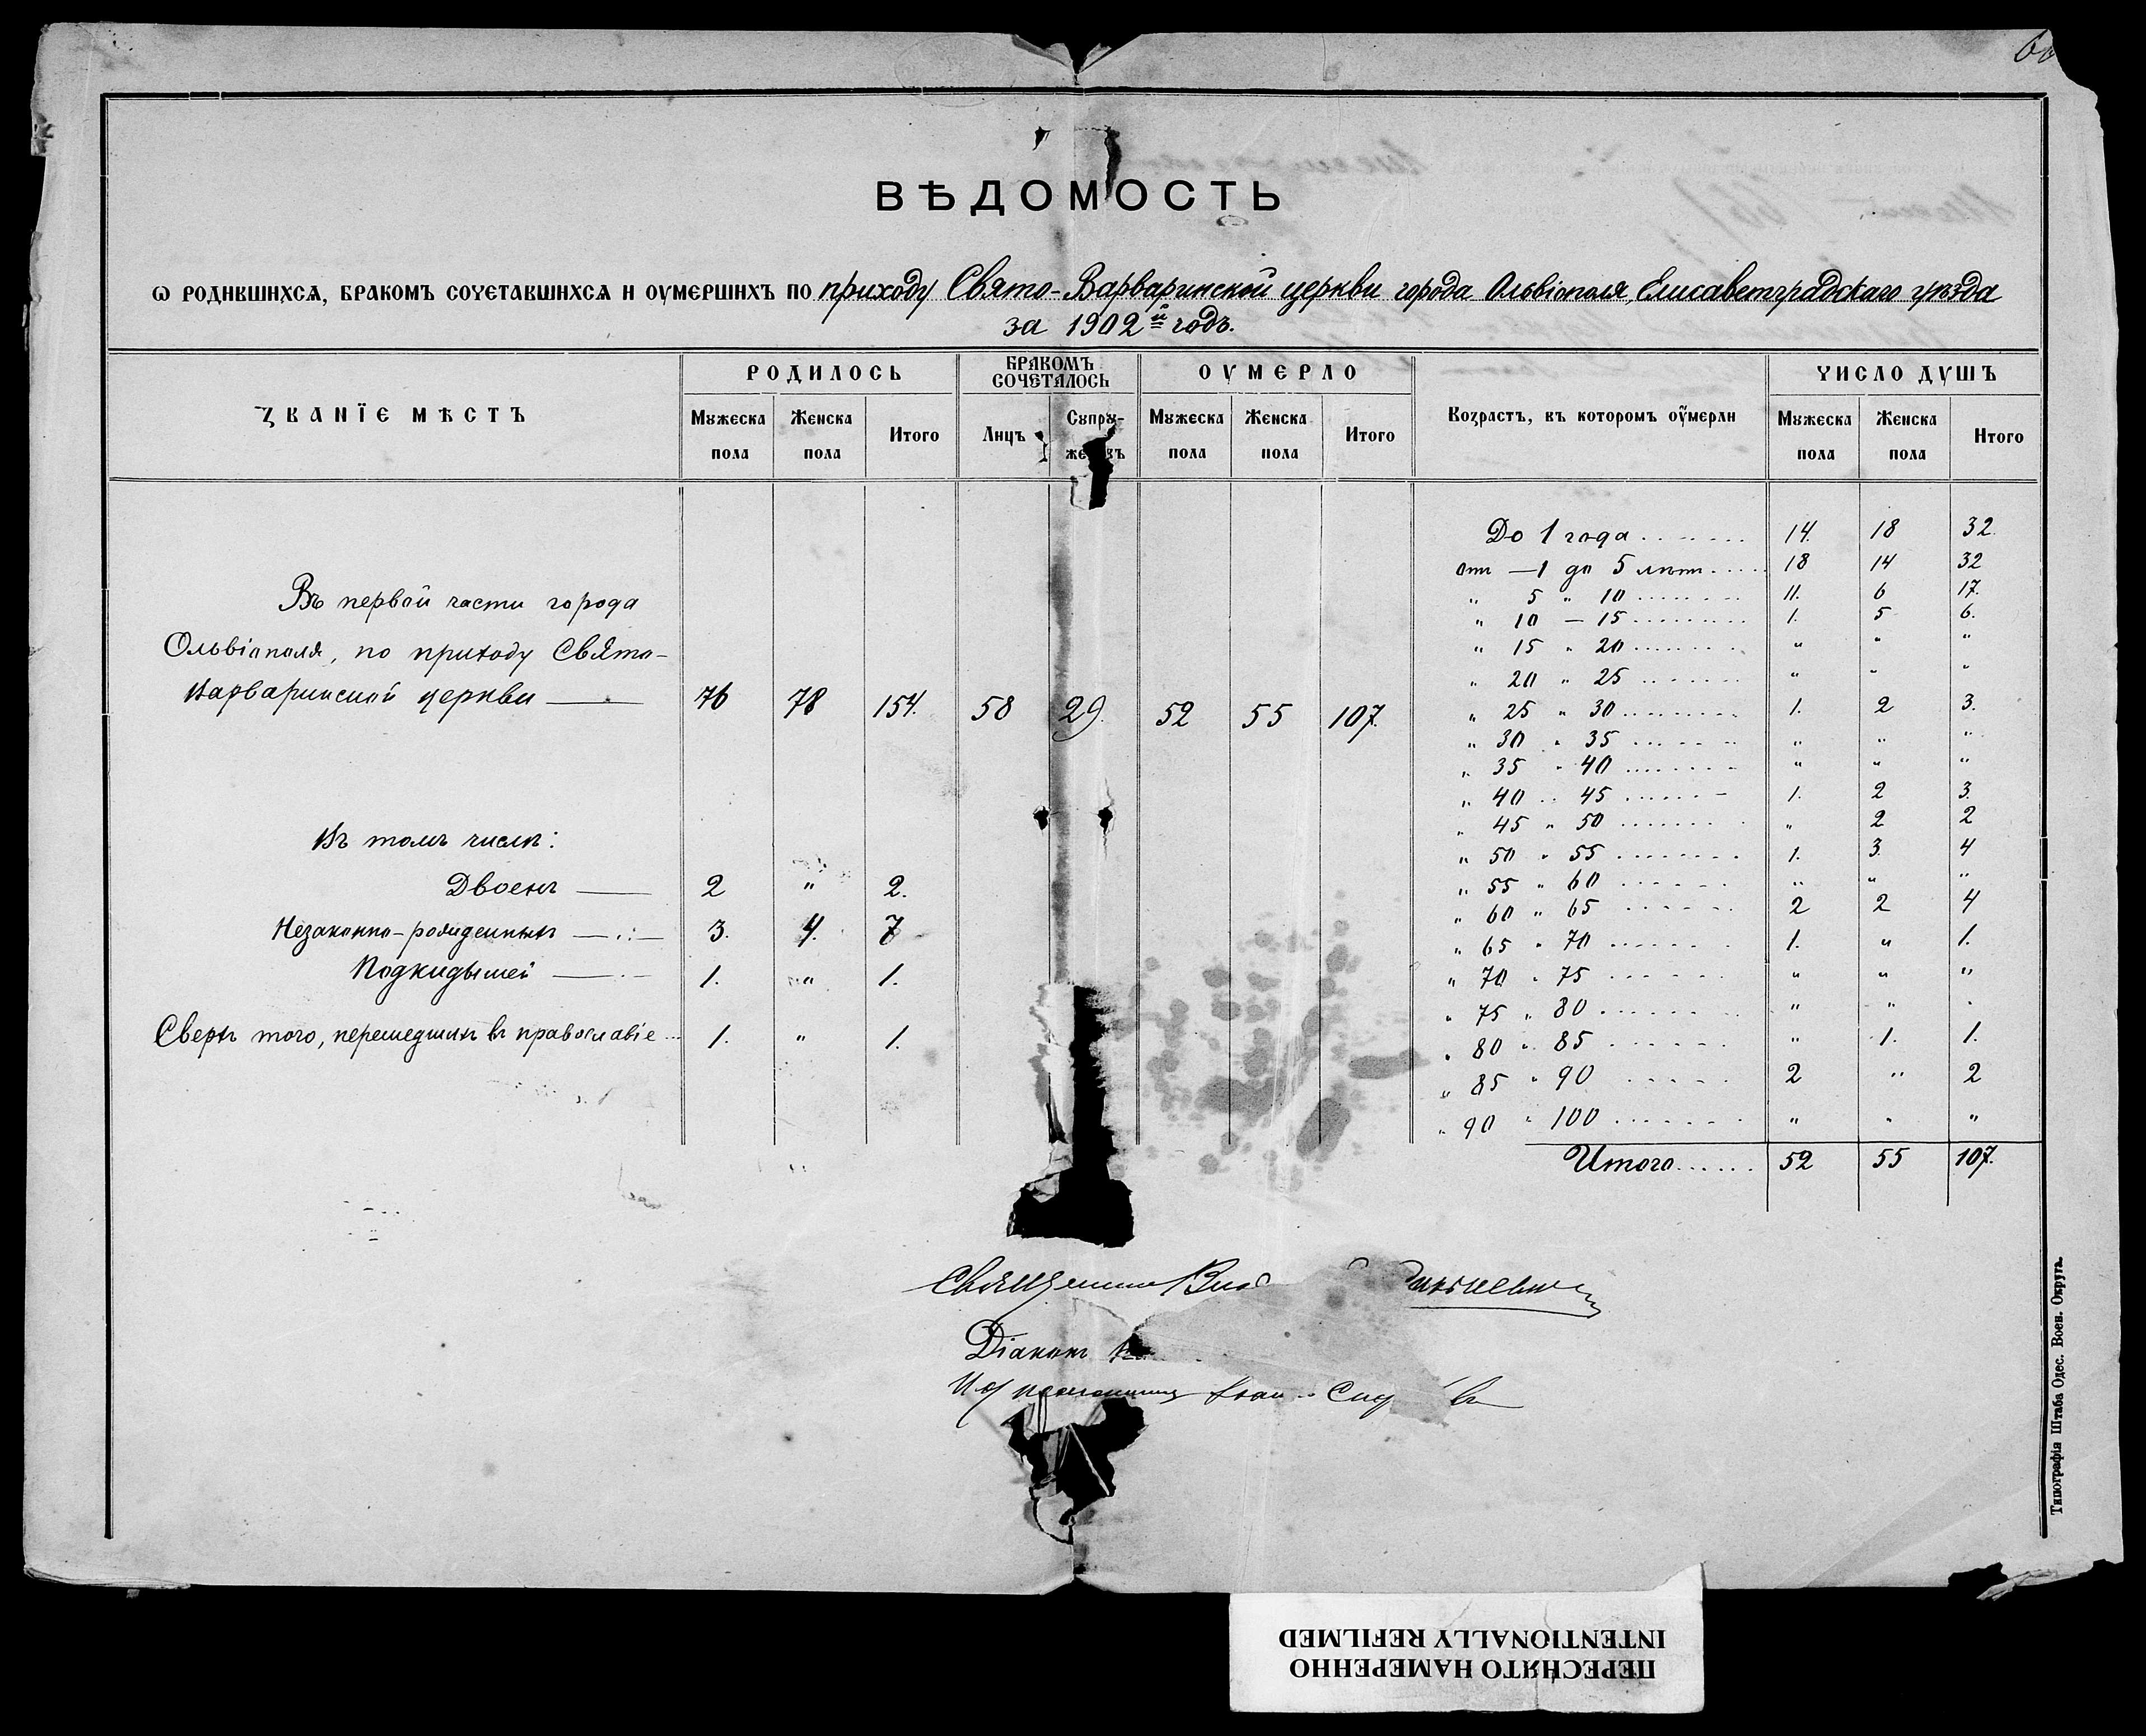 ВѢДОМОСТЬ
ѡ родившихсѧ, бракомъ сочетавшихсѧ и оумершихъ по приходу Свято-Варваринской церкви города Ольвіополя, Елисаветградскаго уѣзда
за 1902й годъ.
Званїе мѣстъ
РОДИЛОСЬ
БРАКОМЪ СОЧЕТАЛОСЬ
ОУМЕРЛО
Возрастъ, въ которомъ оумерли
ЧИСЛО ДУШЪ
Мужеска пола Женска пола Итого Лицъ Супру- Мужеска пола Женска пола Итого Мужеска пола Женска пола Итого
Въ первой части города
Ольвіополя, по приходу Свято-
Варваринской церкви — 76 78 154. 58 29. 52 55 107.
Въ томъ числѣ:
Двоень — 2 " 2.
Незаконно-рожденныхъ — 3. 4. 7
Подкидышей — 1. " 1.
Сверхъ того, перешедшихъ въ православіе ... 1. " 1.
До 1 года ........ 14. 18 32.
отъ — 1 до 5 лѣтъ ..... 18 14 32
" 5 " 10 ........ 11. 6 17.
" 10 — 15 ......... 1. 5 6.
" 15 " 20 ........ " " "
" 20 " 25 ....... " " "
" 25 " 30 ......... 1. 2 3.
" 30 " 35 ....... " " "
" 35 " 40 ........ " " "
" 40 " 45 ...... 1. 2 3.
" 45 " 50 ....... " 2 2
" 50 " 55 ........ 1. 3. 4
" 55 " 60 ...... " " "
" 60 " 65 ...... 2 2 4
" 65 " 70 ....... 1. " 1.
" 70 " 75 ...... " " "
" 75 " 80 ........ " " "
" 80 " 85 ...... " 1. 1.
" 85 " 90 ..... 2 " 2
" 90 " 100 ....... " " "
Итого...... 52 55 107.
Священникъ
Діаконъ
Типографія Штаба Одес. Воен. Округа.
ПЕРЕСНЯТО НАМЕРЕННО
INTENTIONALLY REFILMED